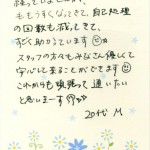 ももうすくなってきて、自己処理
の回数も減ってきて、
すごく助かっています
スタッフの方々もみなさん優しくて
安心して来ることができます
これからも頑張って通いたい
と思いまーす
20代 M